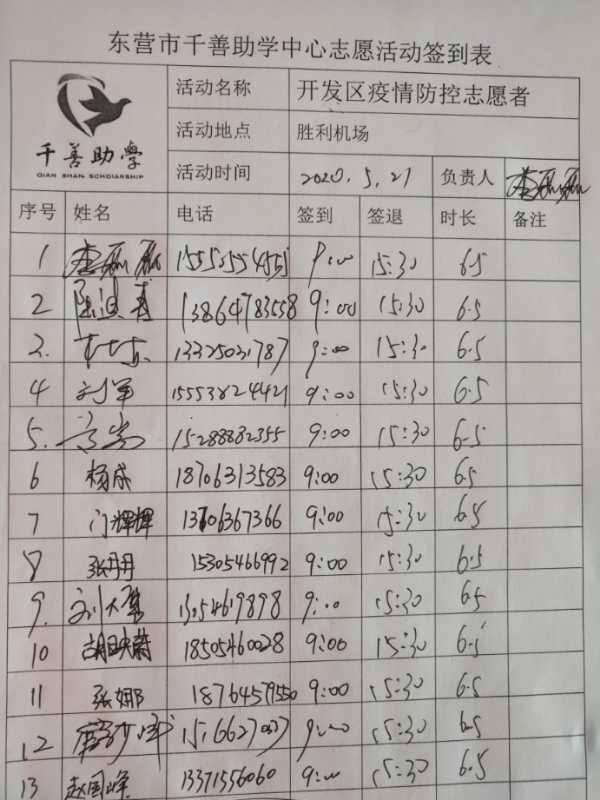 东营市千善助学中心志愿活动签到表
千善助学
QIAN SHAN SCHOLARSHIP
活动名称 开发区疫情防控志愿者
活动地点 胜利机场
活动时间 2020.5.21 负责人
序号 姓名 电话 签到 签退 时长 备注
1 9:00 15:30 6.5
2 13864783558 9:00 15:30 6.5
3. 13325031787 9:00 15:30 6.5
4 刘军 15553824421 9:00 15:30 6.5
5. 15288882355 9:00 15:30 6.5
6 杨成 18706313583 9:00 15:30 6.5
7 门辉辉 13706367366 9:00 15:30 6.5
8 张丹丹 15305466992 9:00 15:30 6.5
9. 13054619898 9:00 15:30 6.5
10 18505460028 9:00 15:30 6.5
11 张娜 18764579550 9:00 15:30 6.5
12 9:00 15:30 6.5
13 赵国峰 13371556060 9:00 15:30 6.5